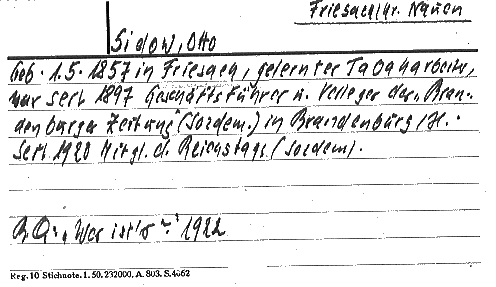 Friesack/Kr. Nauen
Sidow, Otto
Geb. 1.5. 1857 in Friesack, gelernter Tabakarbeiter,
war seit 1897 Geschäftsführer u. Verleger der „Bran-
denburger Zeitung" (Sozdem.) in Brandenburg/H..
Seit 1920 Mitgl. d. Reichstags (Sozdem).
B.Qu. „Wer ist's?" 1922
Reg. 10 Stichnote. 1. 50. 232000. A. 803. S. 4062